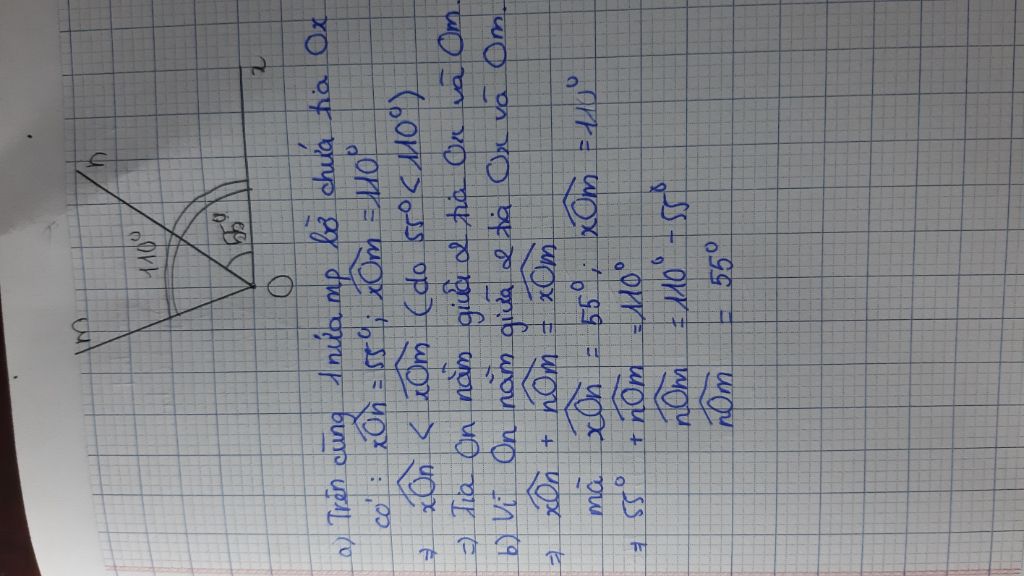 m
n
110°
55°
O
x
a) Trên cùng 1 nửa mp bờ chứa tia Ox
có: xOn = 55°; xOm = 110°
⇒ xOn < xOm (do 55° < 110°)
⇒ Tia On nằm giữa 2 tia Ox và Om.
b) Vì On nằm giữa 2 tia Ox và Om.
⇒ xOn + nOm = xOm
mà xOn = 55°; xOm = 110°
⇒ 55° + nOm = 110°
nOm = 110° - 55°
nOm = 55°